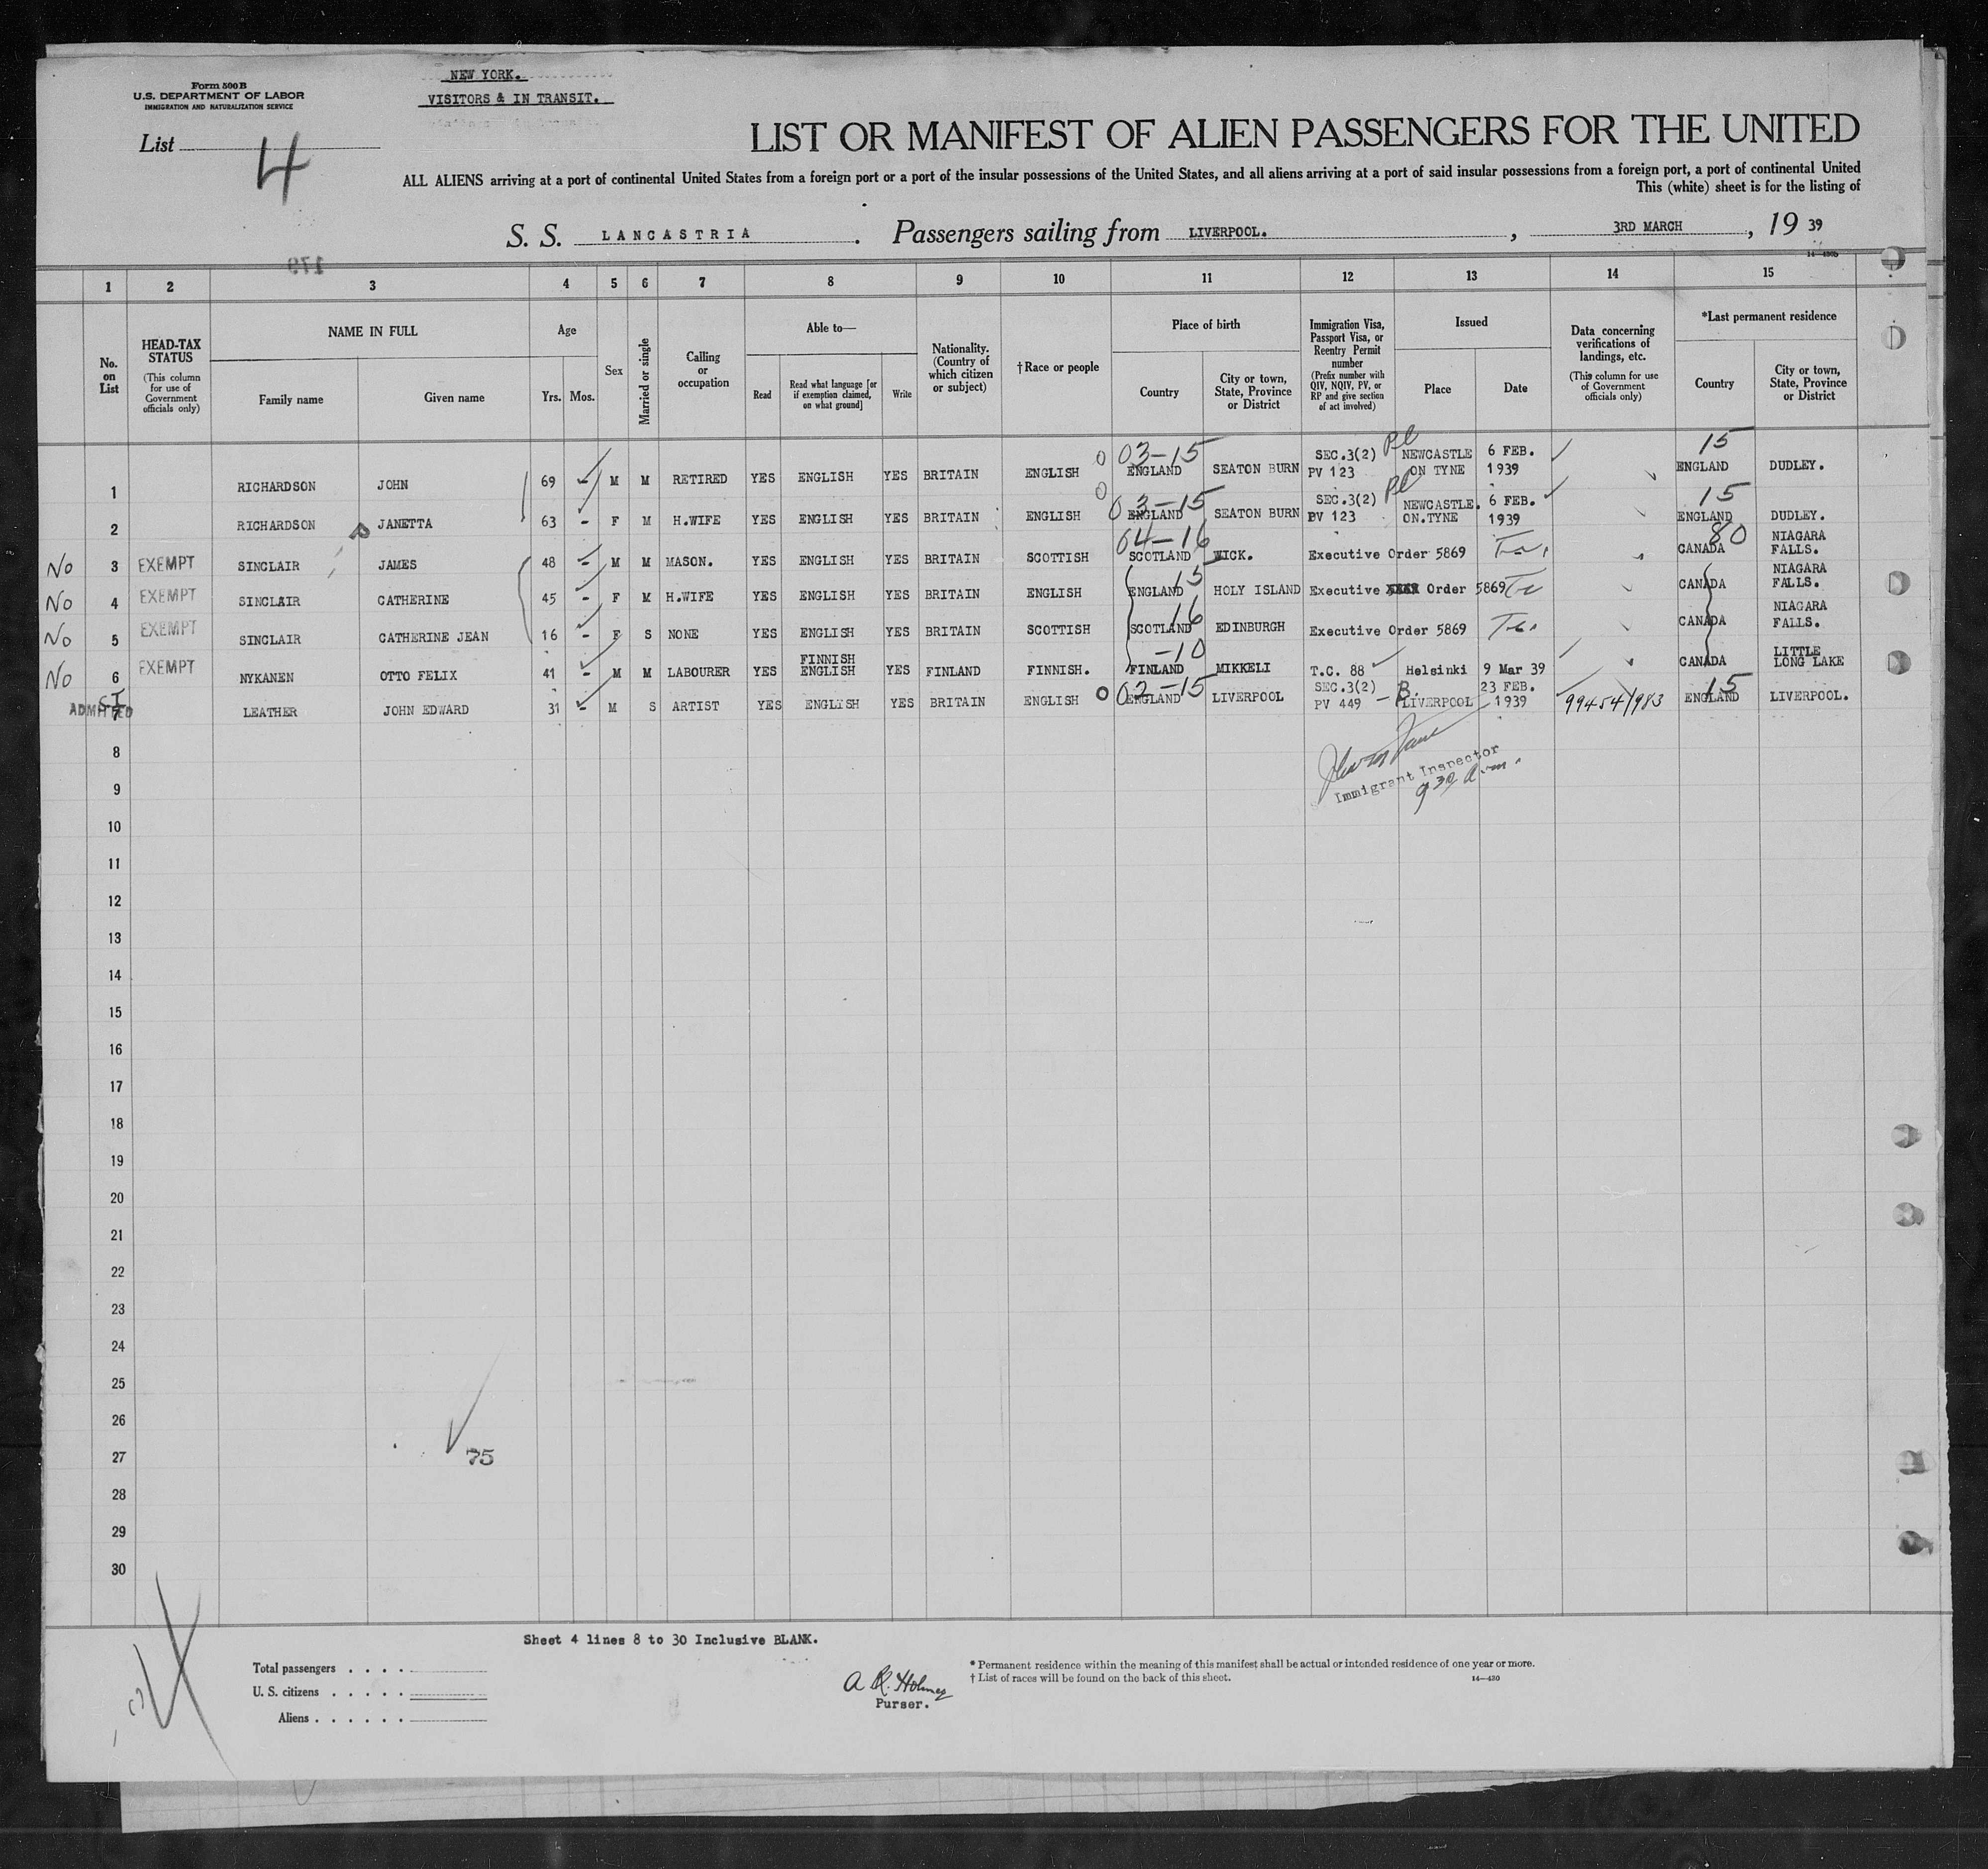 Form 500 B
U.S. DEPARTMENT OF LABOR
IMMIGRATION AND NATURALIZATION SERVICE
NEW YORK.
VISITORS & IN TRANSIT.
List 4
LIST OR MANIFEST OF ALIEN PASSENGERS FOR THE UNITED
ALL ALIENS arriving at a port of continental United States from a foreign port or a port of the insular possessions of the United States, and all aliens arriving at a port of said insular possessions from a foreign port, a port of continental United
This (white) sheet is for the listing of
S. S. LANCASTRIA. Passengers sailing from LIVERPOOL., 3RD MARCH, 19 39
179
14—430b
1 2 3 4 5 6 7 8 9 10 11 12 13 14 15
No. on List
HEAD-TAX STATUS (This column for use of Government officials only)
NAME IN FULL
Family name
Given name
Age
Yrs. Mos.
Sex
Married or single
Calling or occupation
Able to—
Read
Read what language [or if exemption claimed, on what ground]
Write
Nationality. (Country of which citizen or subject)
†Race or people
Place of birth
Country
City or town, State, Province or District
Immigration Visa, Passport Visa, or Reentry Permit number (Prefix number with QIV, NQIV, PV, or RP and give section of act involved)
Issued
Place
Date
Data concerning verifications of landings, etc. (This column for use of Government officials only)
*Last permanent residence
Country
City or town, State, Province or District
1 RICHARDSON JOHN 69 - M M RETIRED YES ENGLISH YES BRITAIN ENGLISH 0 03-15 ENGLAND SEATON BURN SEC.3(2) PV 123 NEWCASTLE ON TYNE 6 FEB. 1939 15 ENGLAND DUDLEY.
2 RICHARDSON JANETTA 63 - F M H.WIFE YES ENGLISH YES BRITAIN ENGLISH 0 03-15 ENGLAND SEATON BURN SEC.3(2) PV 123 NEWCASTLE. ON.TYNE 6 FEB. 1939 15 ENGLAND DUDLEY.
No 3 EXEMPT SINCLAIR JAMES 48 - M M MASON. YES ENGLISH YES BRITAIN SCOTTISH 04-16 SCOTLAND WICK. Executive Order 5869 80 CANADA NIAGARA FALLS.
No 4 EXEMPT SINCLAIR CATHERINE 45 - F M H.WIFE YES ENGLISH YES BRITAIN ENGLISH 15 ENGLAND HOLY ISLAND Executive Order 5869 CANADA NIAGARA FALLS.
No 5 EXEMPT SINCLAIR CATHERINE JEAN 16 - F S NONE YES ENGLISH YES BRITAIN SCOTTISH 16 SCOTLAND EDINBURGH Executive Order 5869 CANADA NIAGARA FALLS.
No 6 EXEMPT NYKANEN OTTO FELIX 41 - M M LABOURER YES FINNISH ENGLISH YES FINLAND FINNISH. -10 FINLAND MIKKELI T.C. 88 Helsinki 9 Mar 39 CANADA LITTLE LONG LAKE
ADMITTED 7 LEATHER JOHN EDWARD 31 - M S ARTIST YES ENGLISH YES BRITAIN ENGLISH 0 02-15 ENGLAND LIVERPOOL SEC.3(2) PV 449 LIVERPOOL 23 FEB. 1939 99454/983 15 ENGLAND LIVERPOOL.
8
Immigrant Inspector
9
9 30 a.m.
10
11
12
13
14
15
16
17
18
19
20
21
22
23
24
25
26
27
75
28
29
30
Sheet 4 lines 8 to 30 Inclusive BLANK.
Total passengers . . . .
U. S. citizens . . . . .
Aliens . . . . . .
A R. Holmes
Purser.
* Permanent residence within the meaning of this manifest shall be actual or intended residence of one year or more.
† List of races will be found on the back of this sheet.
14—430